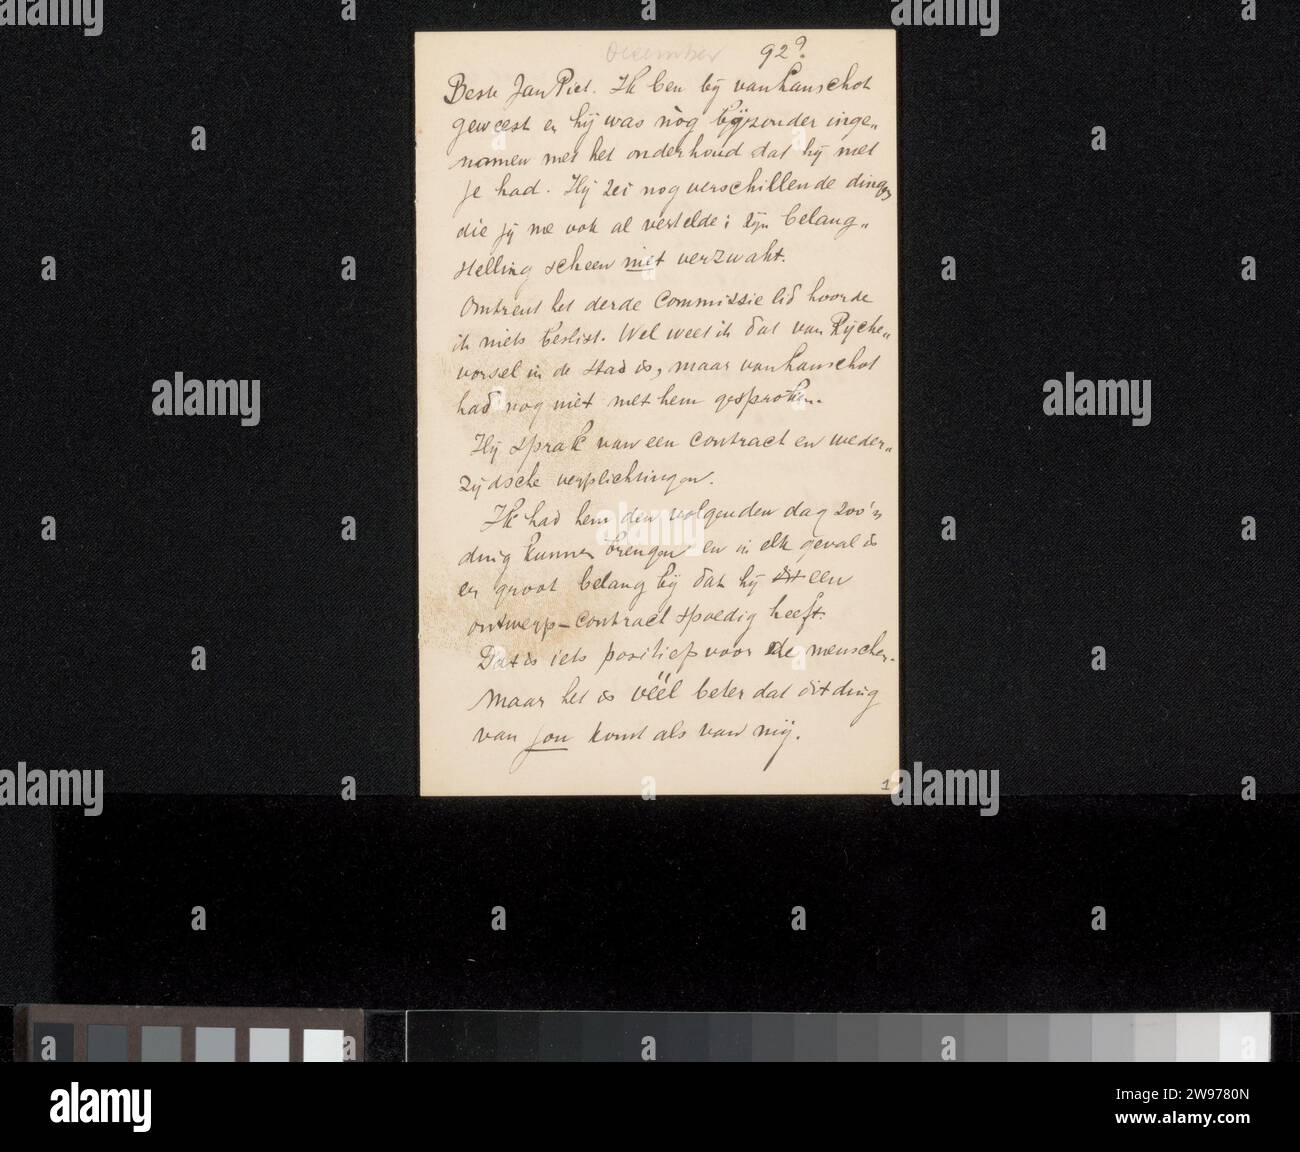 December 92?
Beste Jan Piet. Ik ben bij van Lanschot
geweest en hij was nòg bijzonder inge„
nomen met het onderhoud dat hij met
je had. Hij zei nog verschillende dingen
die jij me ook al vertelde; zijn belang„
stelling scheen niet verzwakt.
Omtrent het derde Commissie lid hoorde
ik niets beslist. Wel weet ik dat van Rijcke„
vorsel in de stad is, maar van Lanschot
had nog niet met hem gesproken.
Hij sprak van een contract en weder„
zijdsche verplichtingen.
Ik had hem den volgenden dag zoo'n
ding kunnen brengen en in elk geval is
er groot belang bij dat hij dit een
ontwerp-contract spoedig heeft.
Dat is iets positiefs voor de menschen.
Maar het is véél beter dat dit ding
van jou komt als van mij.
1
alamy
alamy
alamy
alamy
Image ID: 2W9780N
www.alamy.com